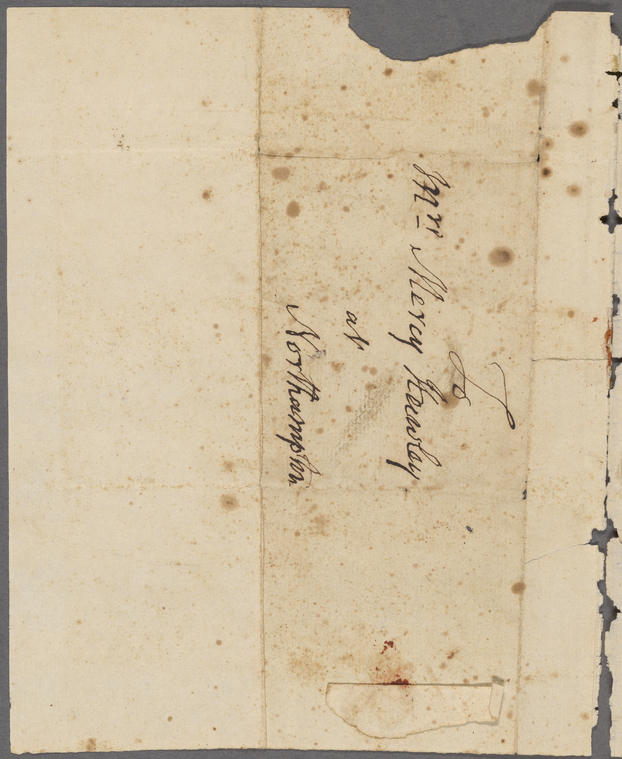 To
Mrs. Mercy Hawley
at
Northampton